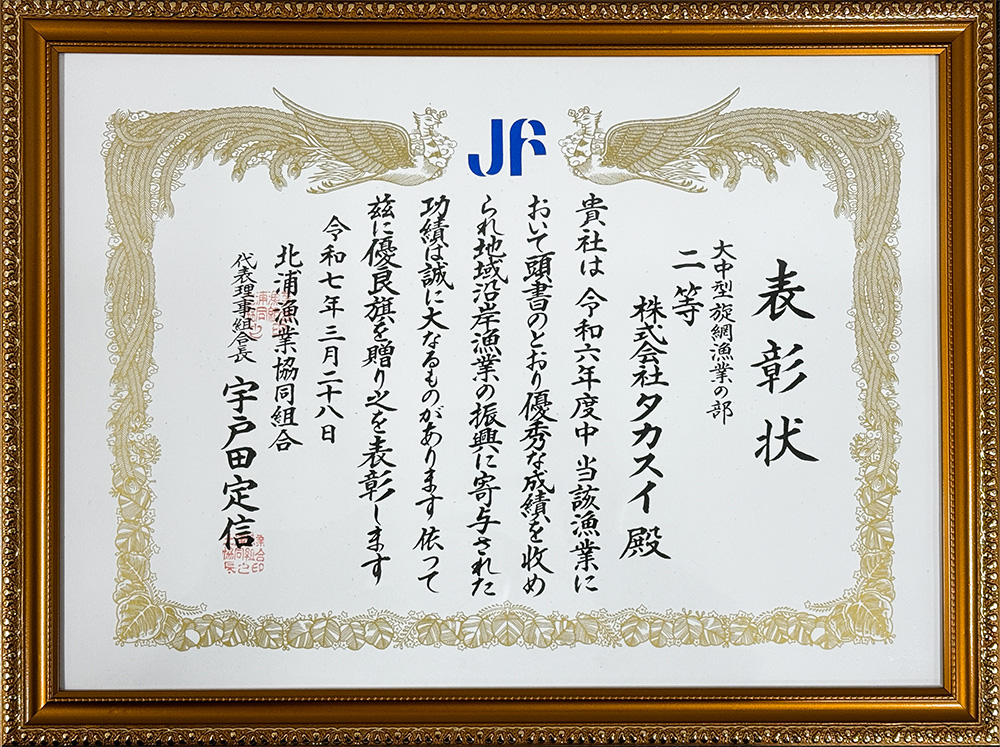 JF
表彰状
大中型旋網漁業の部
二等
株式会社タカスイ殿
貴社は 令和六年度中 当該漁業に
おいて頭書のとおり優秀な成績を収め
られ地域沿岸漁業の振興に寄与された
功績は誠に大なるものがあります 依って
玆に優良旗を贈り之を表彰します
令和七年三月二十八日
北浦漁業協同組合
代表理事組合長 宇戸田定信